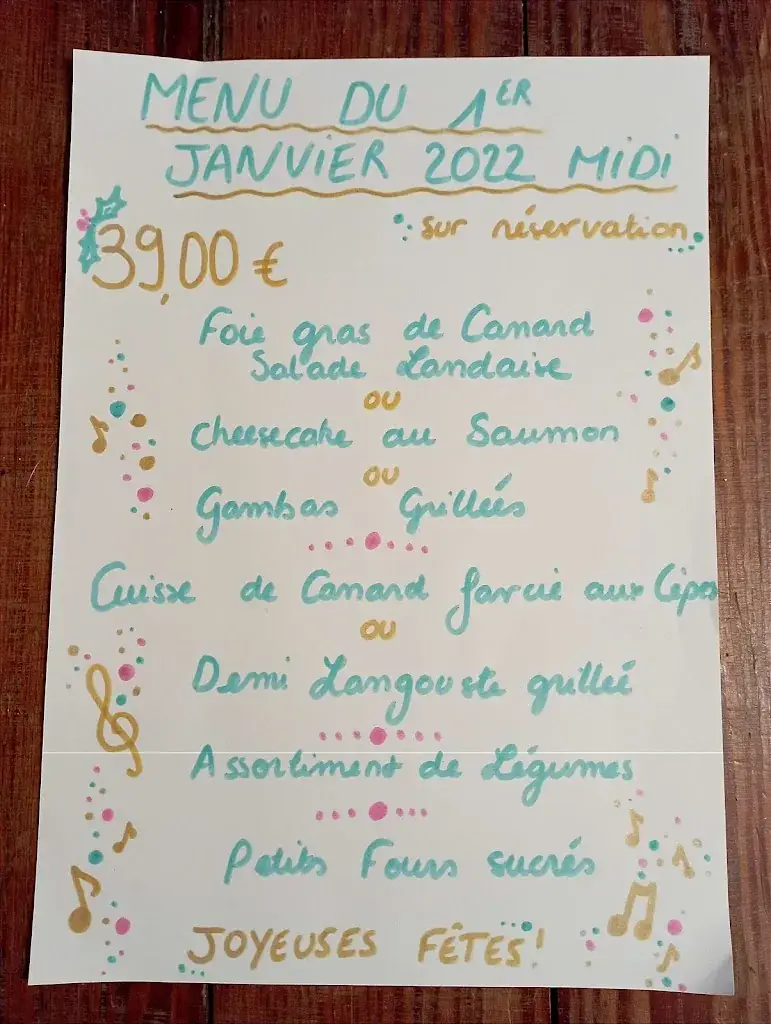 MENU DU 1ER
JANVIER 2022 MIDI
39,00 €
sur réservation
Foie gras de Canard
Salade Landaise
ou
Cheesecake au Saumon
ou
Gambas Grillées
Cuisse de Canard farcie aux Cèpes
ou
Demi Langouste grillée
Assortiment de Légumes
Petits Fours sucrés
JOYEUSES FÊTES!